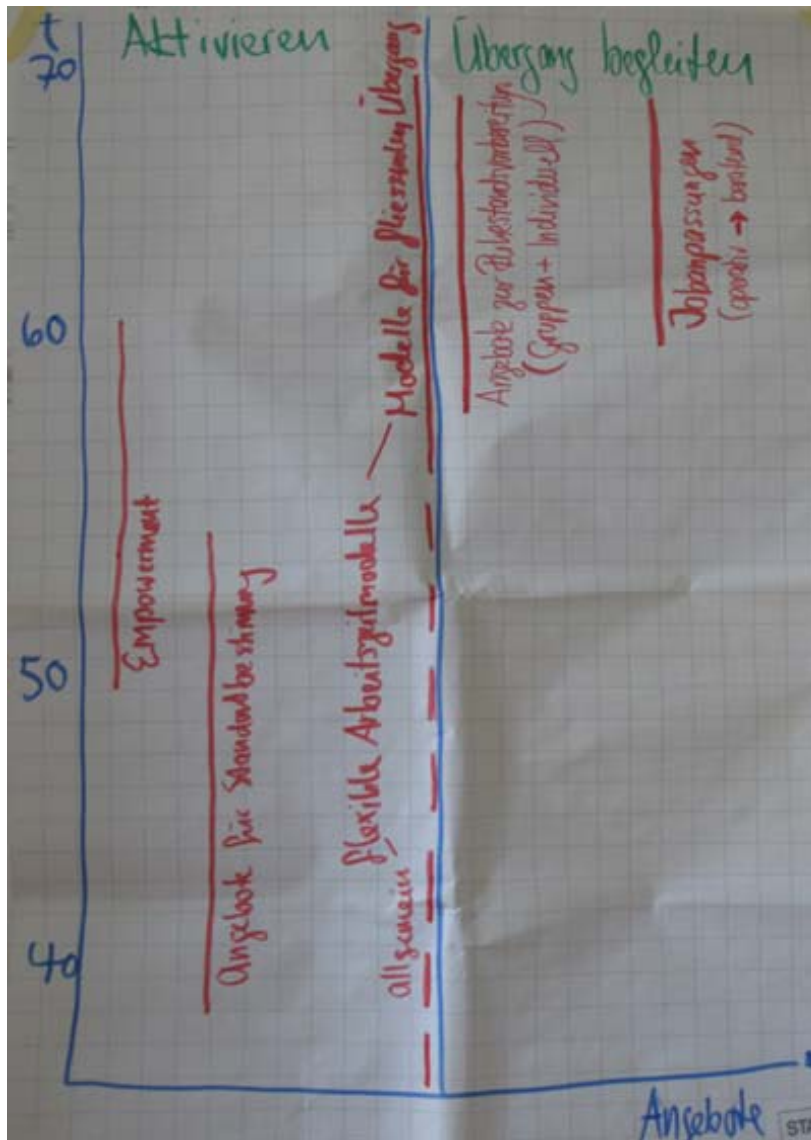 t
Aktivieren
Übergang begleiten
70
60
50
40
Empowerment
Angebote für Standortbestimmung
allgemein
flexible Arbeitszeitmodelle
Modelle für fliessenden Übergang
Angebote zur Ruhestandvorbereitung
(Gruppen + Individuell)
Jobanpassungen
(operativ → beratend)
Angebote